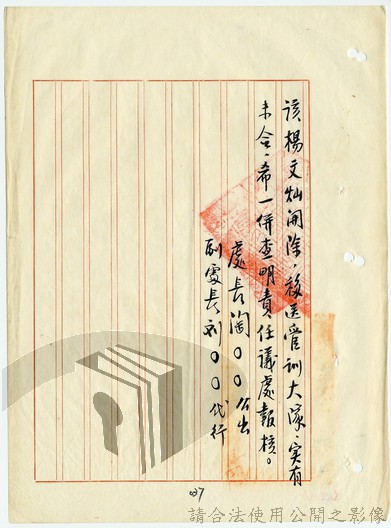 該楊文灿開除,移送管訓大隊,實有
未合,希一併查明責任議處報核。
處長閻〇〇公出
副處長劉〇〇代行
07
請合法使用公開之影像